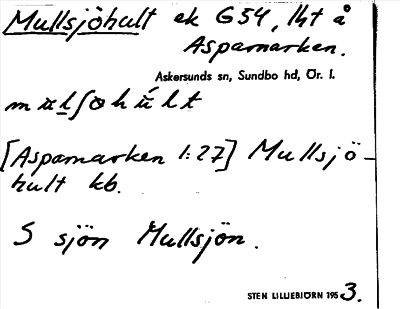 Mullsjöhult ek G54, lht å
Aspamarken.
Askersunds sn, Sundbo hd, Ör. l.
[Aspamarken 1:27] Mullsjö-
hult kb.
S sjön Mullsjön.
STEN LILLIEBJÖRN 1953.